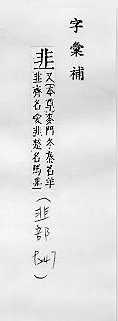 字彙補
韭
又本草麥門冬秦名羊
韭齊名愛韭楚名馬韭
(韭部